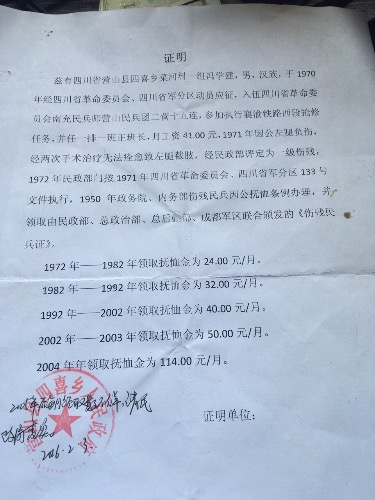 证明
兹有四川省营山县四喜乡菜河村一组冯学建，男，汉族，于 1970
年经四川省革命委员会、四川省军分区动员应征，入伍四川省革命委
员会南充民兵师营山民兵团二营十五连，参加执行襄渝铁路西段轮修
任务，并任一排一班正班长，月工资 41.00 元，1971 年因公左腿负伤，
经两次手术治疗无法痊愈致左腿截肢，经民政部评定为一级伤残，
1972 年民政部门按 1971 年四川省革命委员会、四川省军分区 133 号
文件执行，1950 年政务院、内务部伤残民兵因公抚恤条例办理，并
领取由民政部、总政治部、总后勤部、成都军区联合颁发的《伤残民
兵证》。
1972 年——1982 年领取抚恤金为 24.00 元/月。
1982 年——1992 年领取抚恤金为 32.00 元/月。
1992 年——2002 年领取抚恤金为 40.00 元/月。
2002 年——2003 年领取抚恤金为 50.00 元/月。
2004 年年领取抚恤金为 114.00 元/月。
四喜乡人民政府
证明单位：